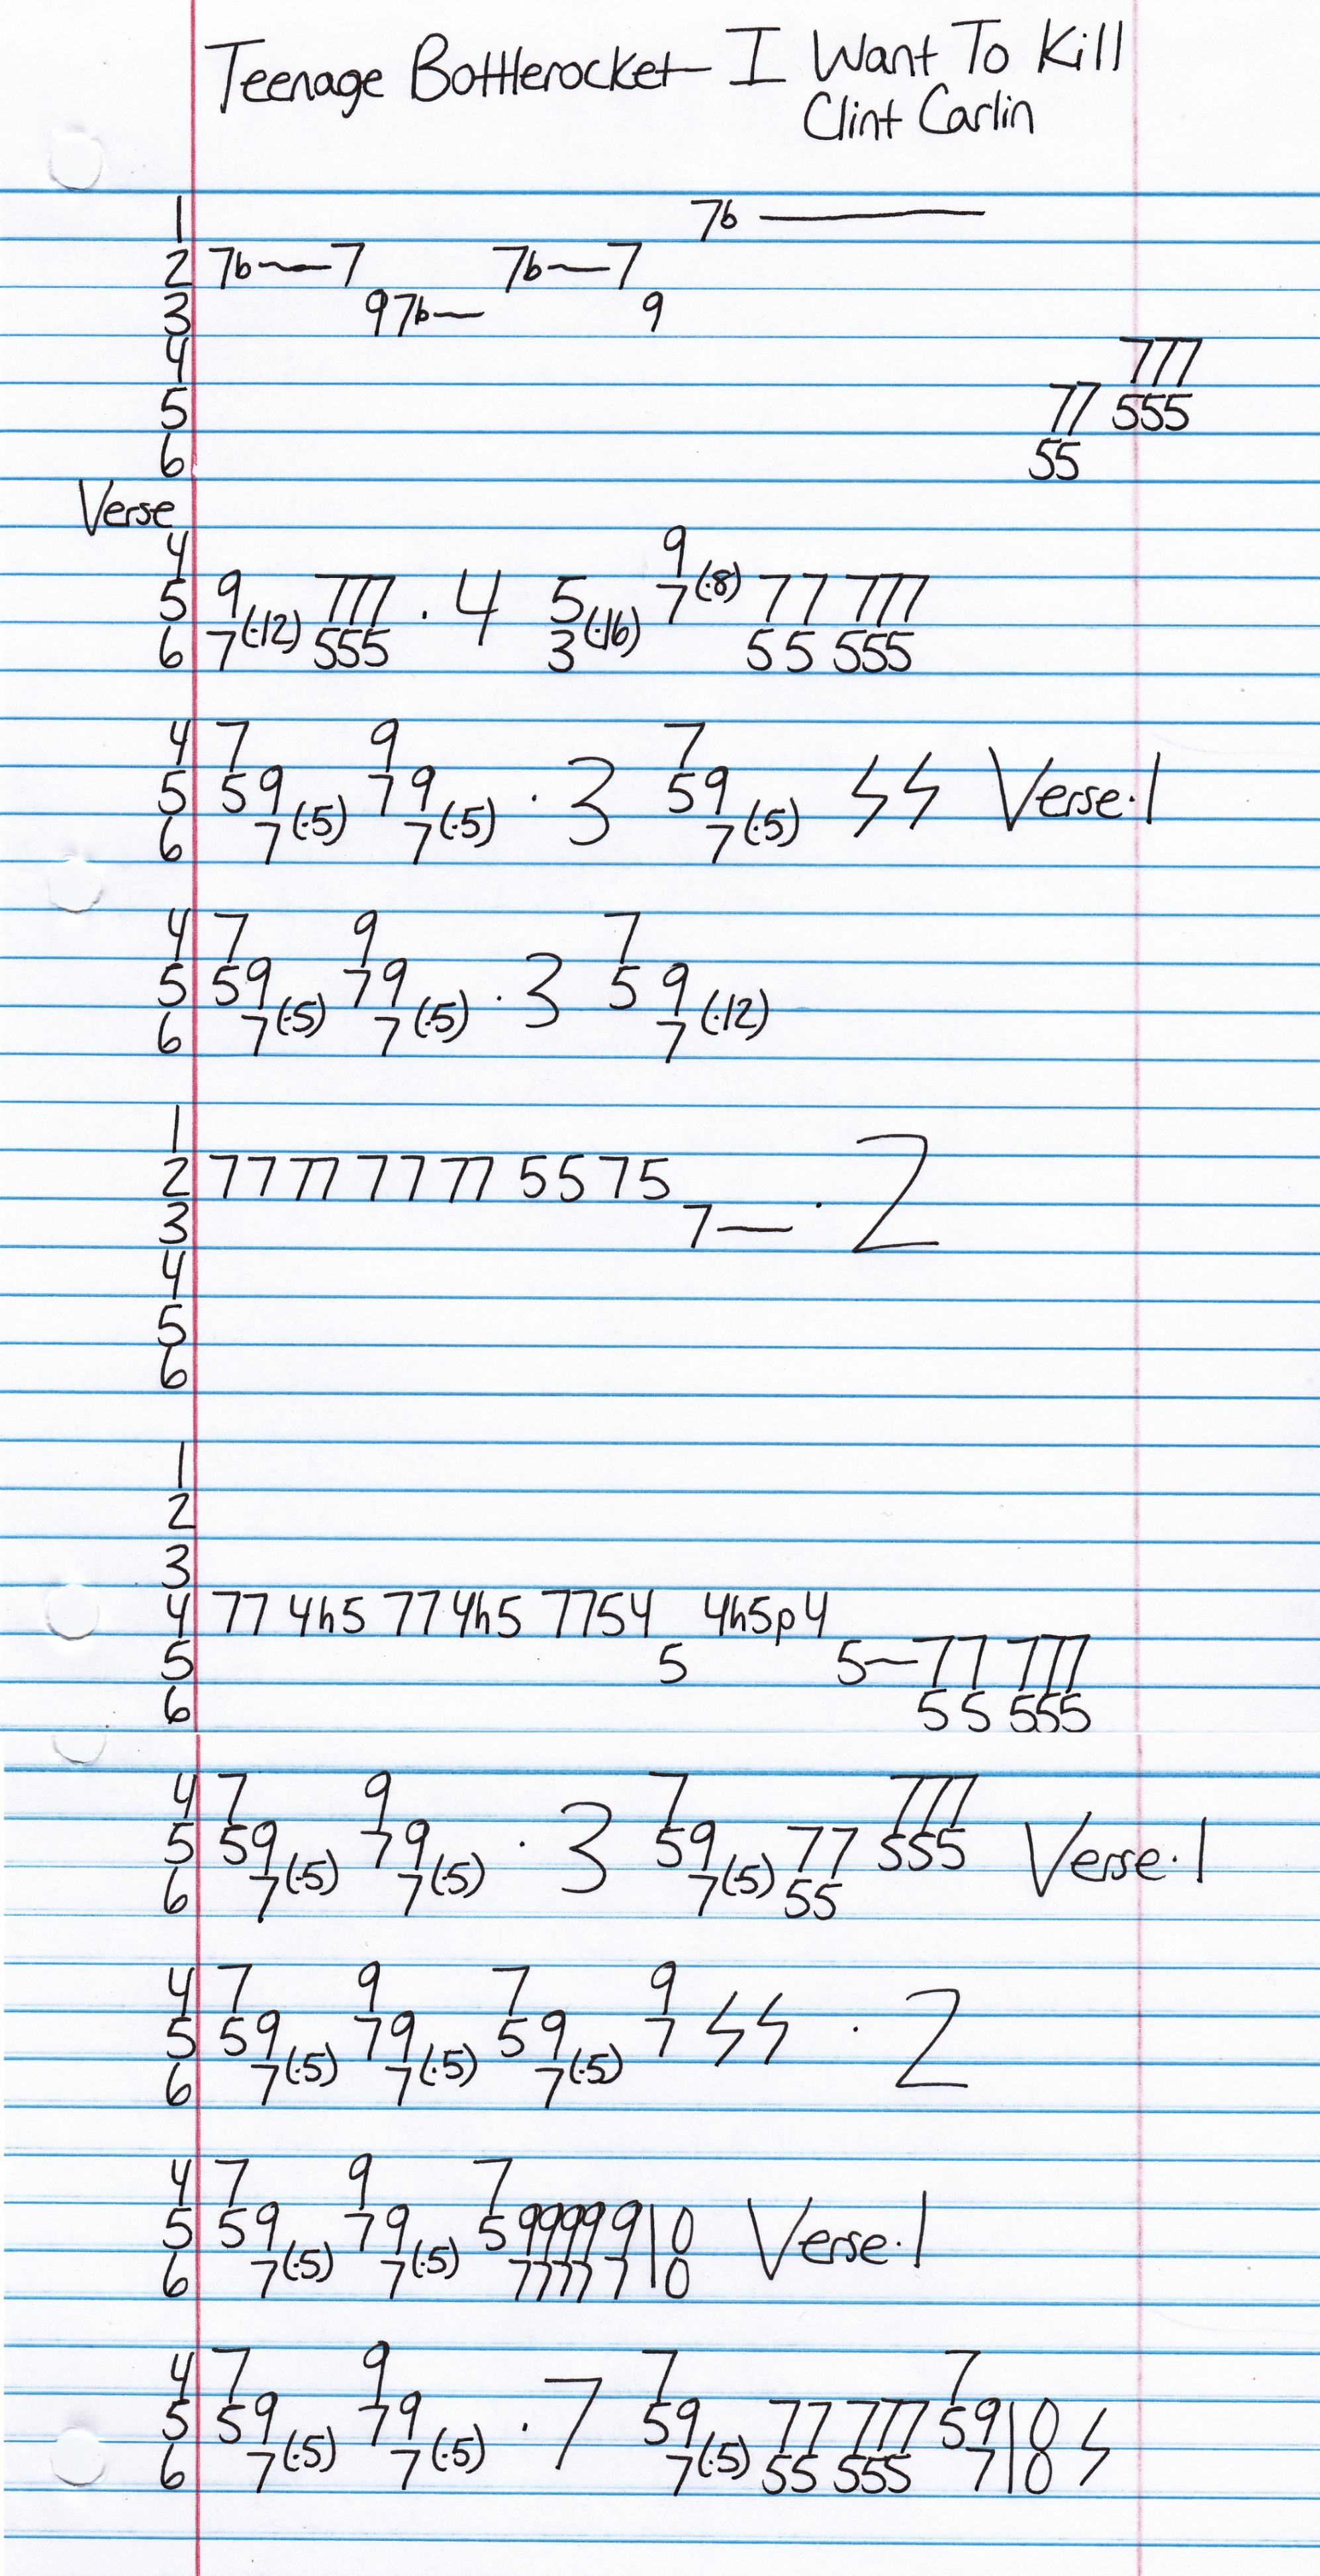 Teenage Bottlerocket - I Want To Kill
Clint Carlin
1 7b —
2 7b—7 7b—7
3 9 7b— 9
4 777
5 77 555
6 55
Verse
4 9
5 9 777 . 4 5 7 (.8) 77 777
6 7 (.12) 555 3 (.16) 5 5 555
4 7 9 7
5 59 79 . 3 59 ϟϟ Verse.1
6 7 (.5) 7 (.5) 7 (.5)
4 7 9 7
5 59 79 . 3 5 9
6 7 (.5) 7 (.5) 7 (.12)
1
2 77 77 77 77 55 75
3 7— . 2
4
5
6
1
2
3
4 77 4h5 77 4h5 7754 4h5p4
5 5 5—77 777
6 5 5 555
4 7 9 7 777
5 59 79 . 3 59 77 555 Verse.1
6 7 (.5) 7 (.5) 7 (.5) 55
4 7 9 7 9
5 59 79 59 7 ϟϟ . 2
6 7 (.5) 7 (.5) 7 (.5)
4 7 9 7
5 59 79 5 9999 9|0 Verse.1
6 7 (.5) 7 (.5) 7777 7|0
4 7 9 7 7
5 59 79 . 7 59 77 777 59|0 ϟ
6 7 (.5) 7 (.5) 7 (.5) 55 555 7|0